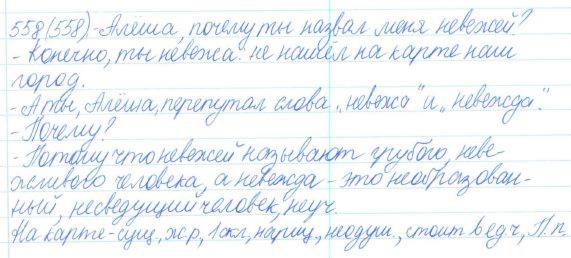 558(558).-Алёша, почему ты назвал меня невежей?
- Конечно, ты невежа. не нашёл на карте наш
город.
- А ты, Алёша, перепутал слова „невежа" и „невежда".
- Почему?
- Потому что невежей называют грубого, неве-
жливого человека, а невежда - это необразован-
ный, несведущий человек, неуч.
На карте-сущ., ж.р, 1 скл, нариц, неодуш., стоит в ед ч, П.п.